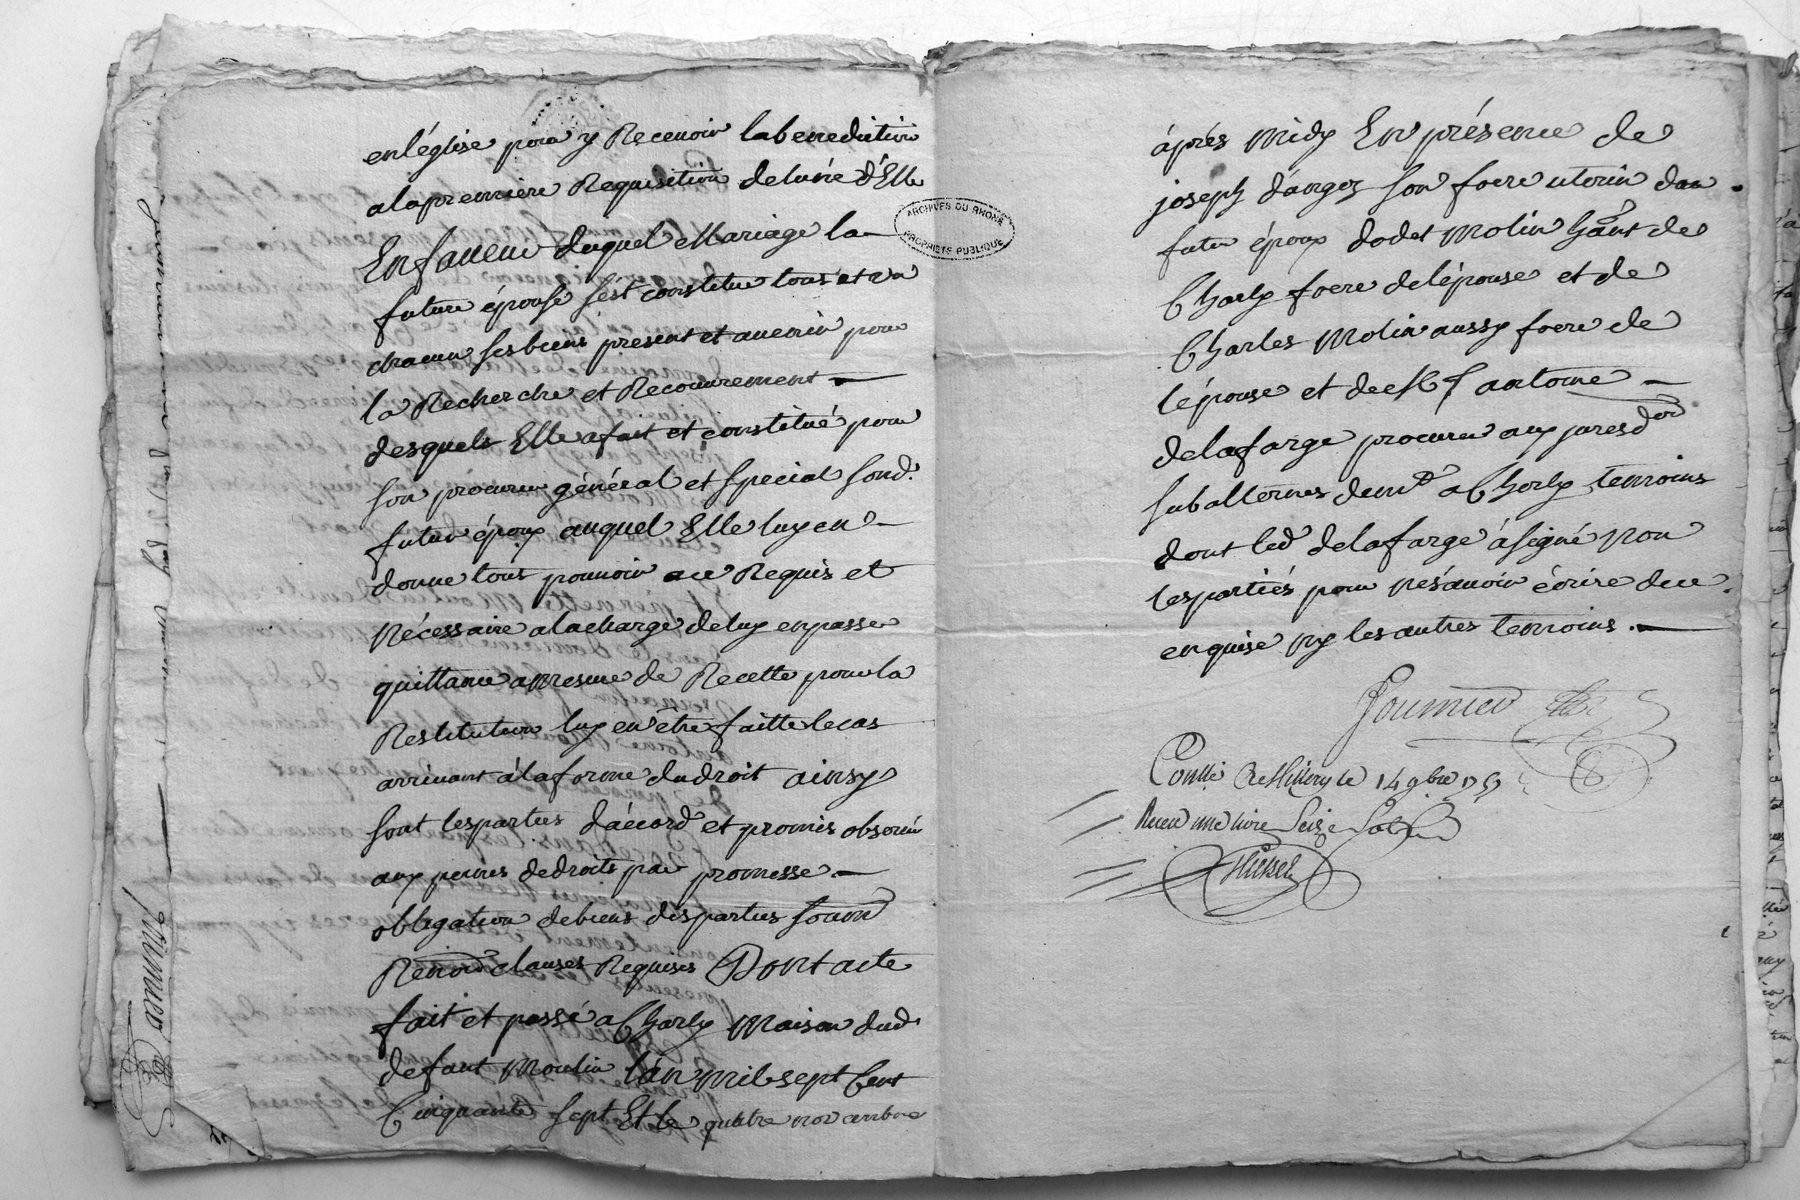 en léglise pour y Recevoir la benediction
ala premiere Requisition delune d'Elle
En faveur duquel Mariage la
future épouse s'est constitue tous et un
chacun ses biens present et avenir pour
la Recherche et Recouvrement
desquels Elle a fait et constitué pour
son procureur général et special sond.
futur époux auquel Elle luy en
donne tous pouvoir a ce Requis et
Nécessaire ala charge deluy en passer
quittance a mesure de Recette pour la
Restitution luy en être faitte le cas
arrivant á la forme du droit ainsy
sont les parties d'accord et promis observer
aux peines de droits par promesse
obligation de biens des parties soum
Renon clauses Requises Dont acte
fait et passé a Charly Maison dud
defunt Moulin l'an mil sept Cent
Cinquante sept Et le quatre novembre
ARCHIVES DU RHÔNE
PROPRIÉTÉ PUBLIQUE
áprés Midy En présence de
joseph dangez son frere uterin dud
futur époux dodet Molin hant de
Charly frere de lépouse et de
Charles Molin aussy frere de
lépouse et de antoine
delafarge procureur aux juresdon
subalternes dem a Charly temoins
dont led delafarge á signé Non
les partiés pour ne sçavoir écrire de ce
enquise ny les autres temoins.
Fournier
Conllé a Millery le 14 9bre 1757
Receu une livre Seize Sols
Fournier